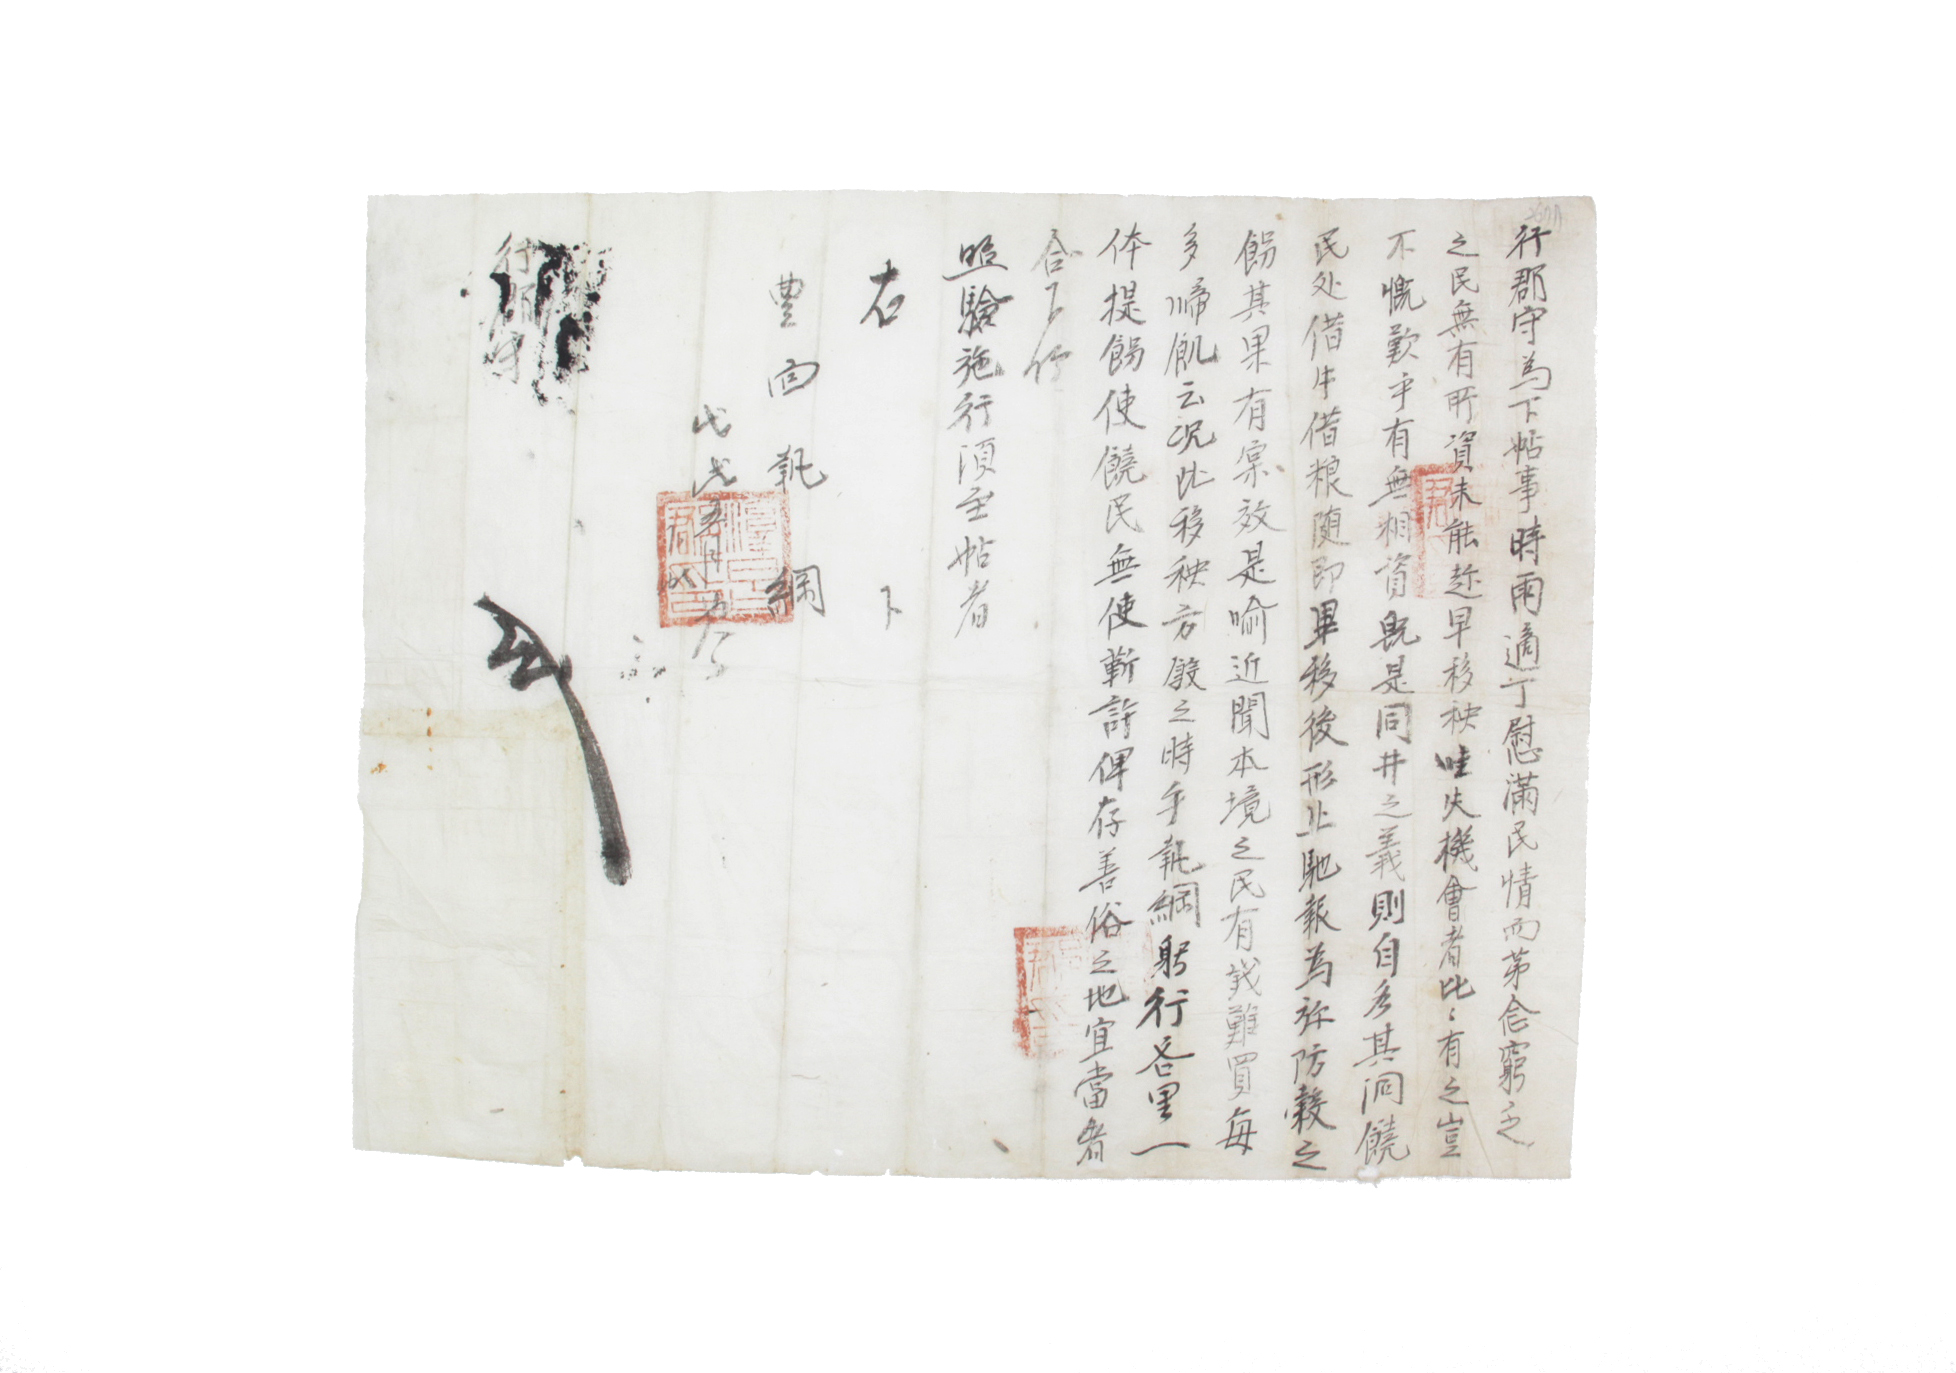 行郡守為下帖事時雨適丁慰滿民情而第念窮乏
之民無有所資未能趂早移秧 失機會者比〻有之豈
不慨歎乎有無相資旣是同井之義則自各其洞饒
民处借牛借粮随即畢移後形止馳報為旀防穀之
餙其果有宲效是喻近聞本境之民有錢難買每
多啼飢云况此移秧方殷之時乎執綱躬行各里一
体提餙使饒民無使靳許俾存善俗之地宜當者
合下行
照驗施行須至帖者
右 下
豊面執綱
戊戌五月 
行郡守